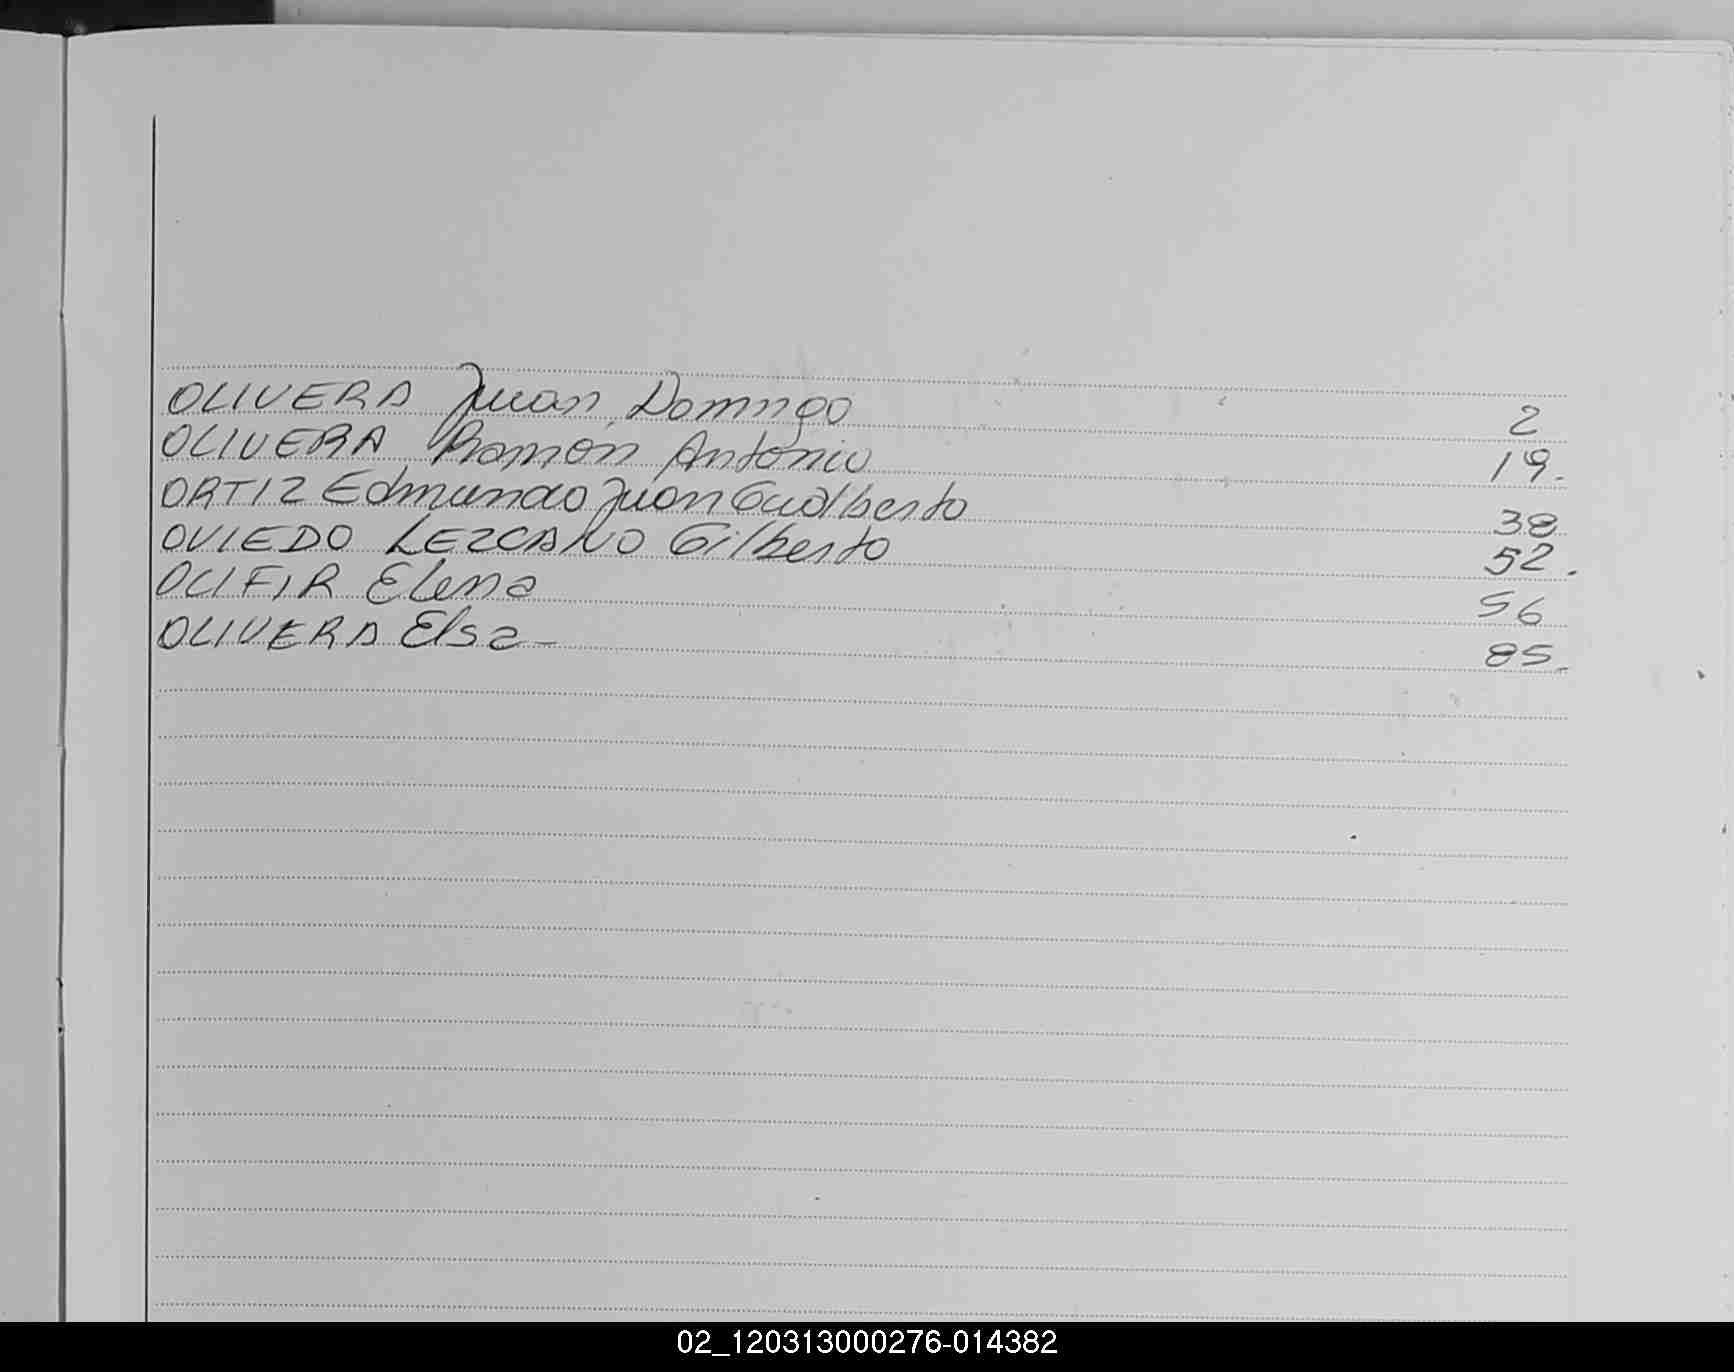 OLIVERA Juan Domingo 2
OLIVERA Ramón Antonio 19.
ORTIZ Edmundo Juan Gualberto 38
OVIEDO LEZCANO Gilberto 52.
OLIFIR Elena 56
OLIVERA Elsa - 85.
02_120313000276-014382